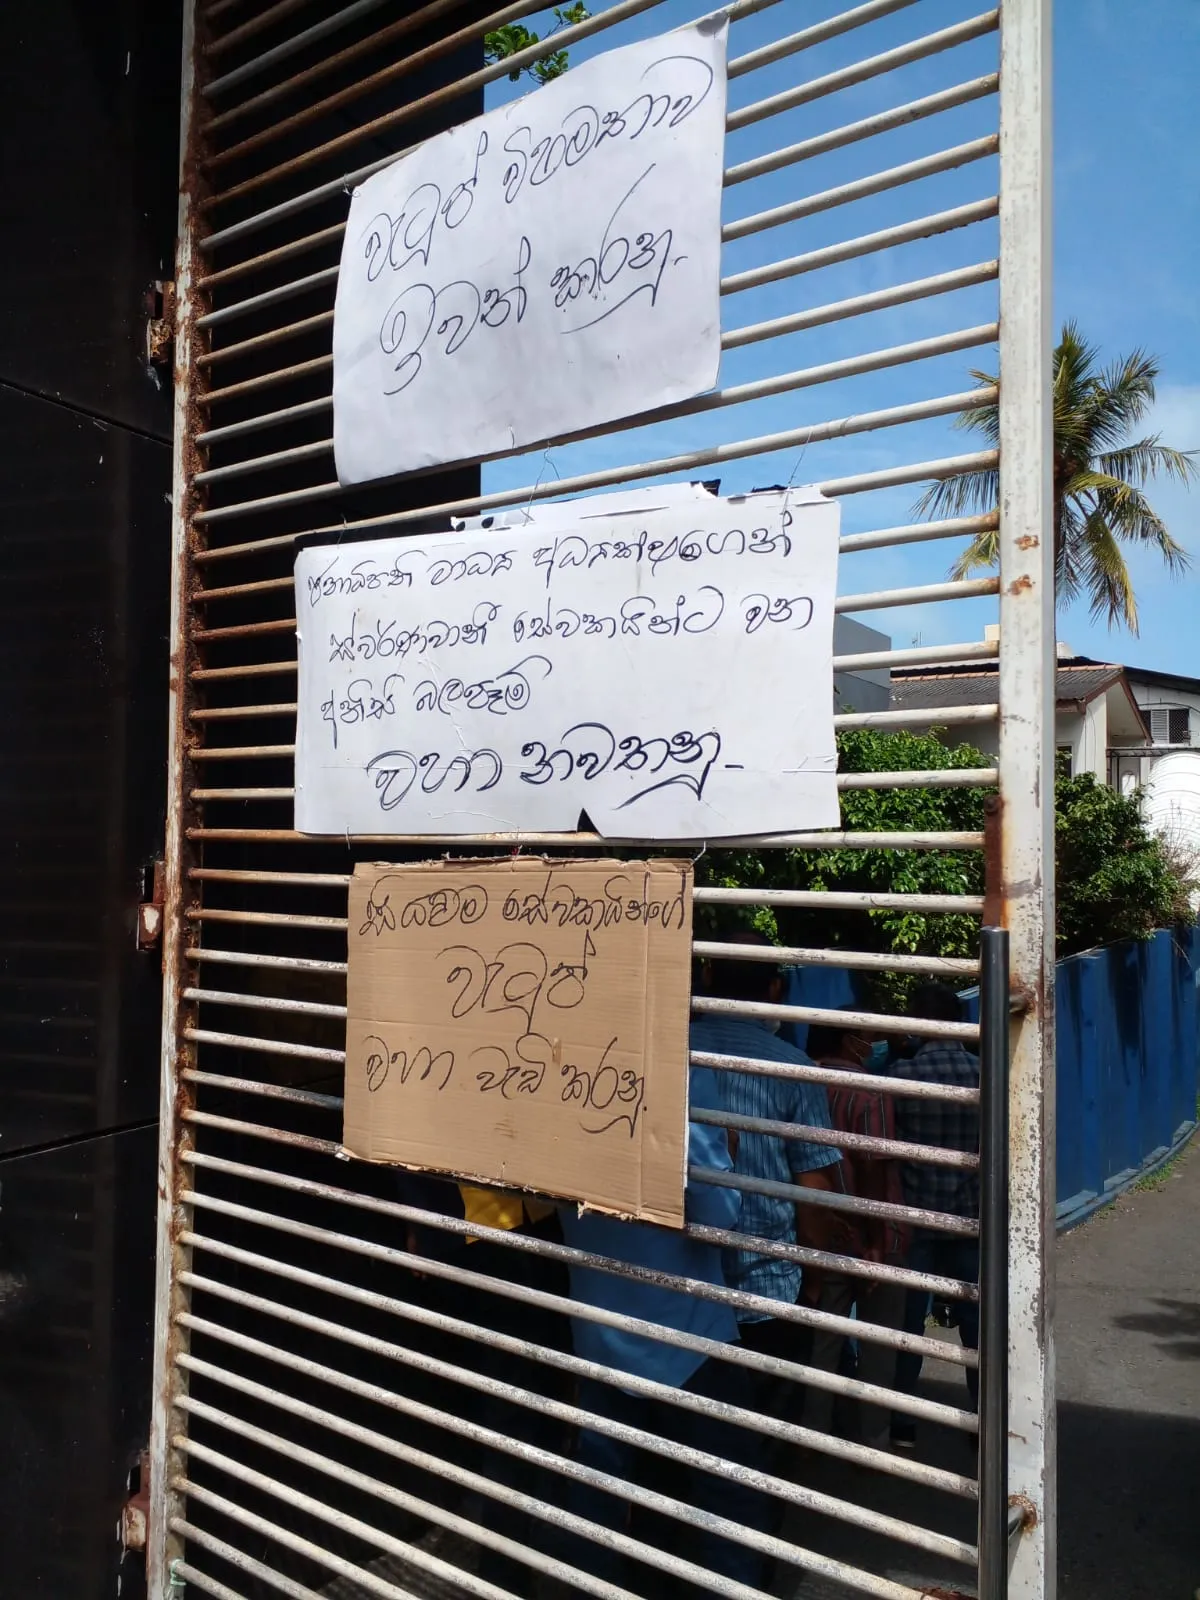 වැටුප් විෂමතාව
ඉවත් කරනු.
ජනාධිපති මාධ්‍ය අධ්‍යක්ෂගෙන්
ස්වර්ණවාහිනී සේවකයින්ට වන
අනිසි බලපෑම්
වහා නවතනු.
සියළුම සේවකයින්ගේ
වැටුප්
වහා වැඩි කරනු.